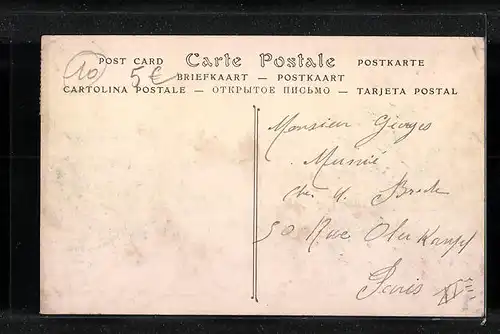 POST CARD Carte Postale POSTKARTE
BRIEFKAART — POSTKAART
CARTOLINA POSTALE — ОТКРЫТОЕ ПИСЬМО — TARJETA POSTAL
10
5€
Monsieur Georges
50 Rue Oberkampf
Paris XIE